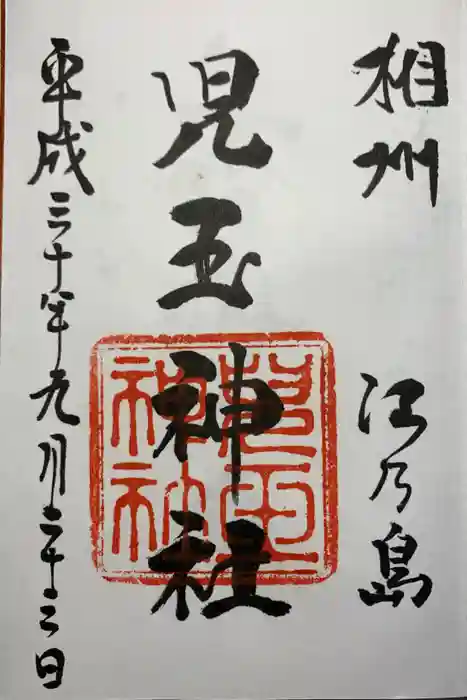 相州 江乃島
児玉神社
児玉神社
平成三十年九月二十三日